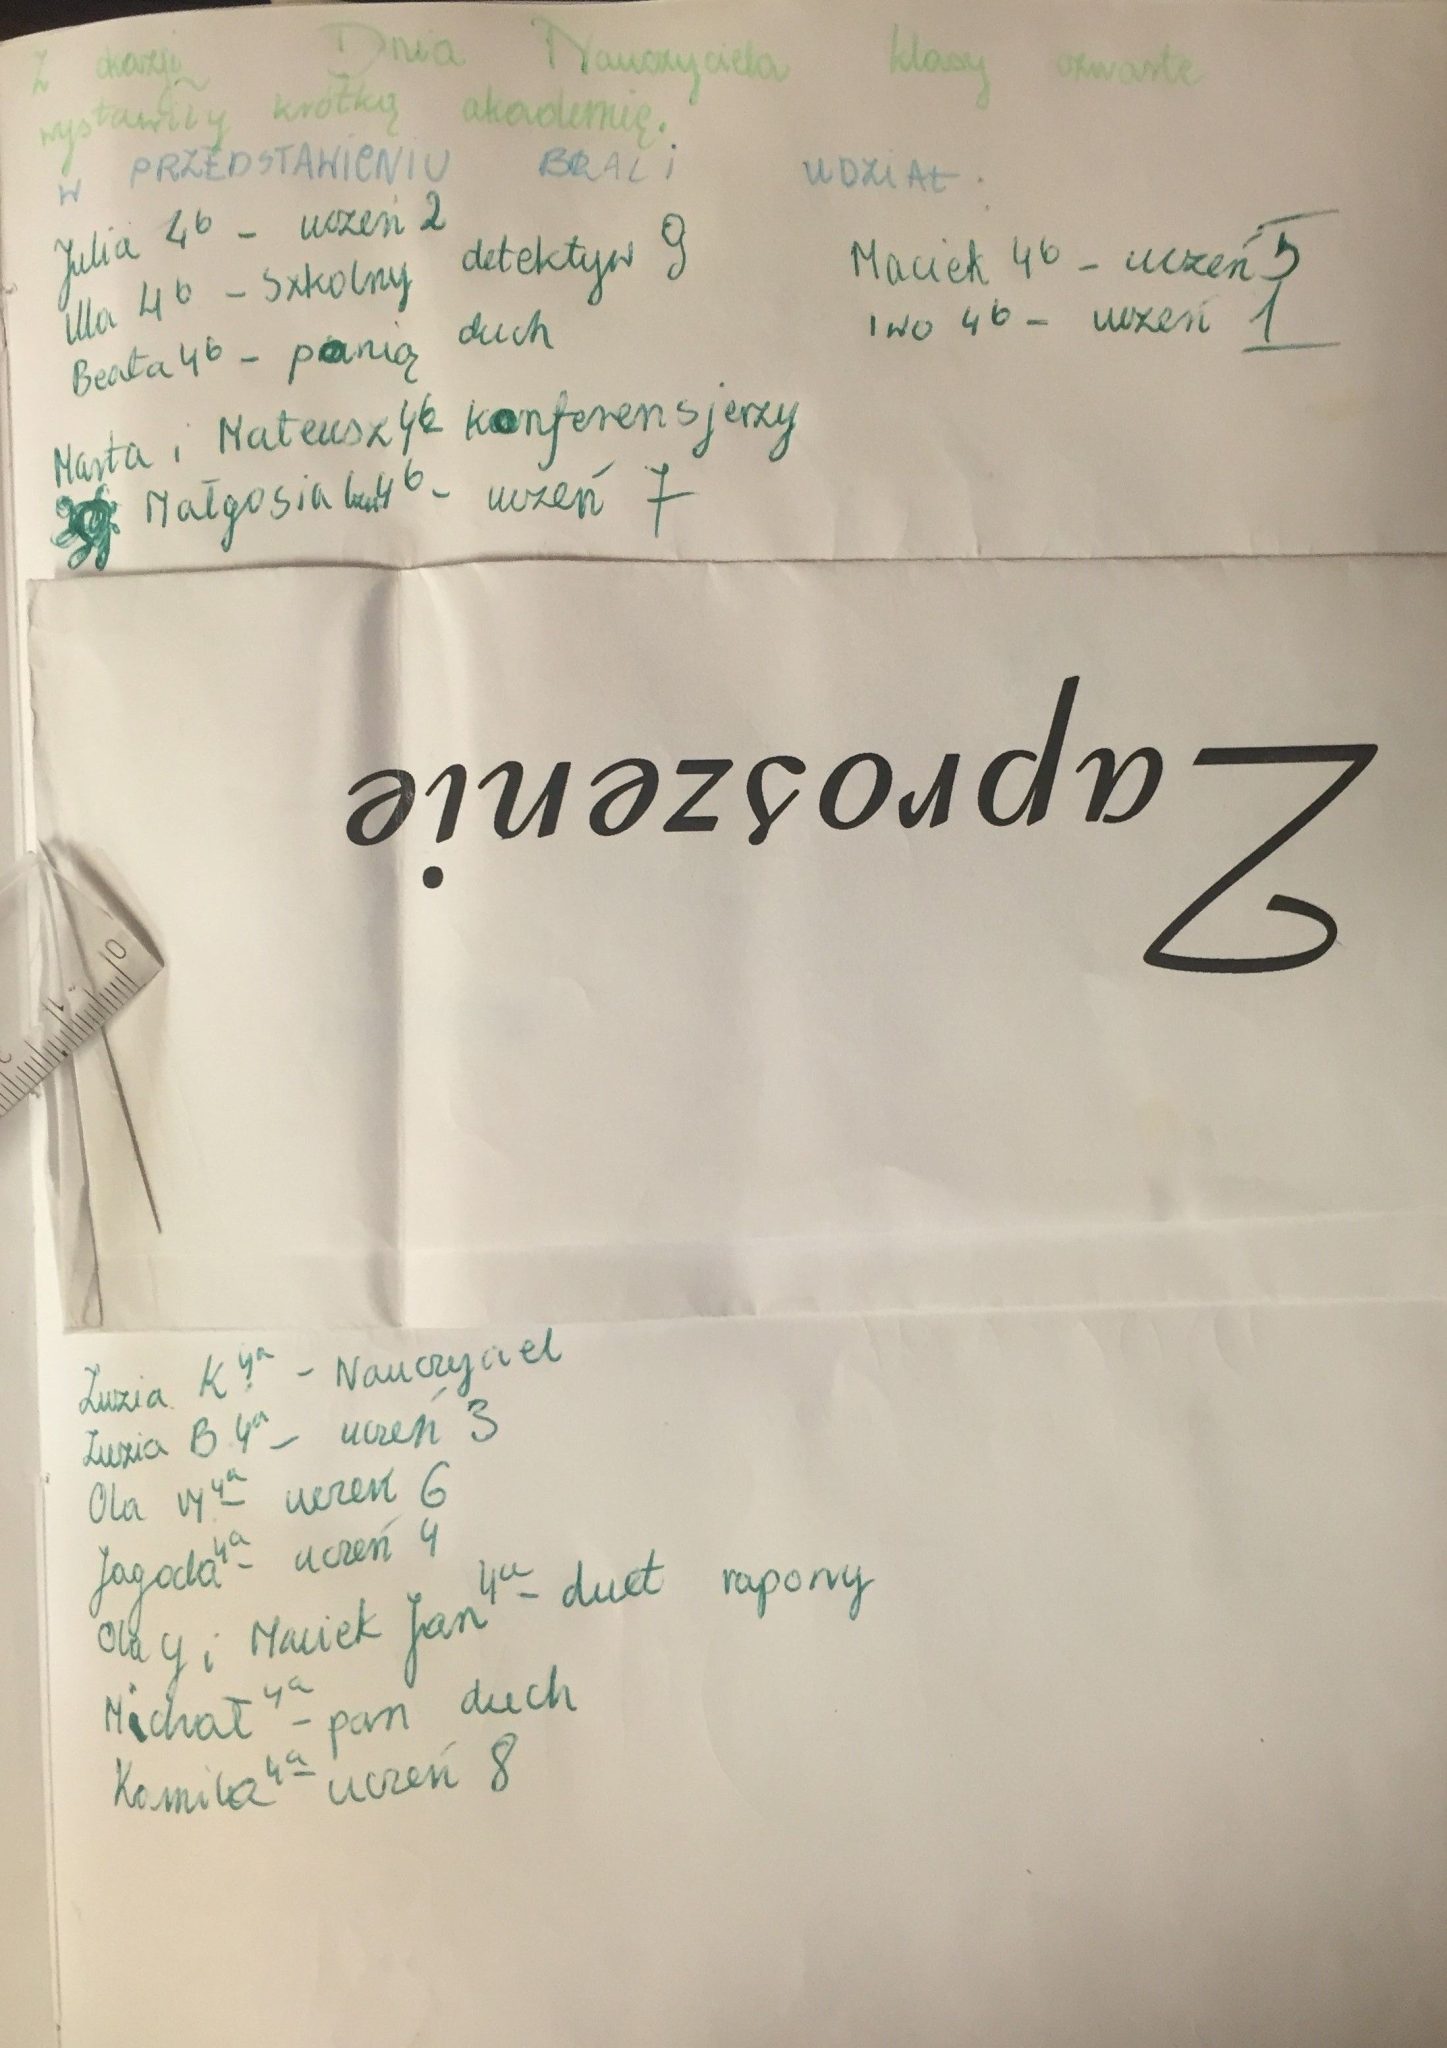 Z okazji Dnia Nauczyciela klasy czwarte
wystawiły krótką akademię.
W PRZEDSTAWIENIU BRALI UDZIAŁ:
Julia 4b - uczeń 2
Ula 4b - Szkolny detektyw 9
Beata 4b - panią duch
Maciek 4b - uczeń 5
Iwo 4b - uczeń 1
Marta i Mateusz 4b konferensjerzy
Małgosia 4b - uczeń 7
Zaproszenie
0 1 2
Zuzia K 4a - Nauczyciel
Zuzia B 4a - uczeń 3
Ola W 4a - uczeń 6
Jagoda 4a - uczeń 4
Ola y i Maciek Jan 4a - duet rapowy
Michał 4a - pan duch
Kamila 4a - uczeń 8